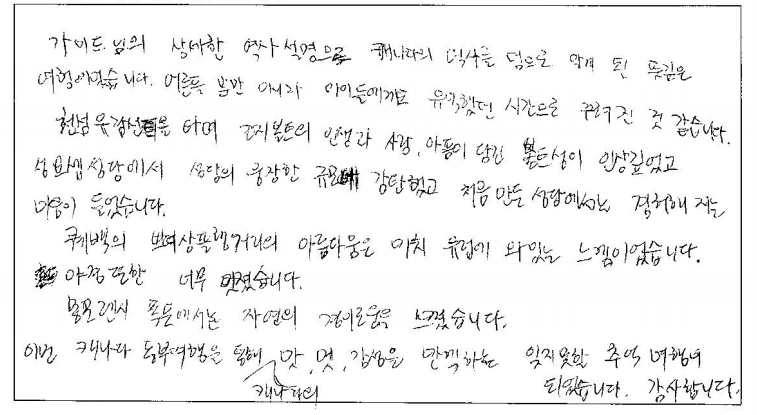 가이드님의 상세한 역사 설명으로 캐나다의 역사를 덤으로 알게 된 뜻깊은
여행이었습니다. 어른들 뿐만 아니라 아이들에게도 유익했던 시간으로 꾸려진 것 같습니다.
천섬 유람선을 타며 조지볼트의 인생과 사랑, 아픔이 담긴 볼트성이 인상깊었고
성요셉성당에서 성당의 웅장한 규모에 감탄했고 처음 만든 성당에서는 경허해 지는
마음이 들었습니다.
퀘백의 쁘띠샹플랭거리의 아름다움은 마치 유럽에 와있는 느낌이었습니다.
야경 또한 너무 멋졌습니다.
몽모렌시 폭포에서는 자연의 경이로움을 느꼈습니다.
이번 캐나다 동부여행을 통해 캐나다의 맛, 멋, 감성을 만끽하는 잊지못할 추억 여행이
되었습니다. 감사합니다.